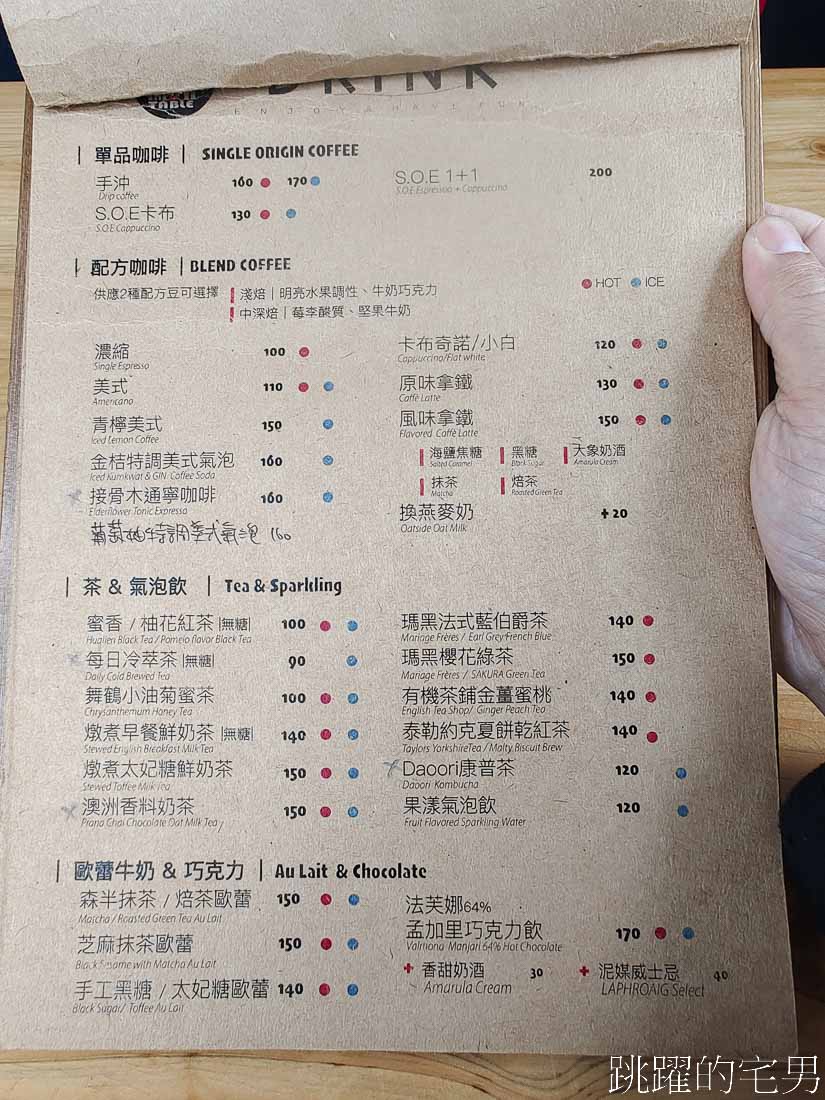 TABLE
DRINK
ENJOY & HAVE FUN
單品咖啡 | SINGLE ORIGIN COFFEE
手沖 160 170
Drip coffee
S.O.E 1+1 200
S.O.E Espresso + Cappuccino
S.O.E卡布 130
S.O.E Cappuccino
配方咖啡 | BLEND COFFEE
供應2種配方豆可選擇 | 淺焙 | 明亮水果調性、牛奶巧克力
中深焙 | 莓李酸質、堅果牛奶
HOT ICE
濃縮 100
Single Espresso
美式 110
Americano
青檸美式 150
Iced Lemon Coffee
金桔特調美式氣泡 160
Iced Kumkwat & GIN Coffee Soda
接骨木通寧咖啡 160
Elderflower Tonic Expresso
葡萄柚特調美式氣泡 160
卡布奇諾/小白 120
Cappuccino/Flat white
原味拿鐵 130
Caffè Latte
風味拿鐵 150
Flavored Caffè Latte
海鹽焦糖 黑糖 大象奶酒
Salted Caramel Black Sugar Amarula Cream
抹茶 焙茶
Matcha Roasted Green Tea
換燕麥奶 +20
Oatside Oat Milk
茶 & 氣泡飲 | Tea & Sparkling
蜜香 / 柚花紅茶 |無糖| 100
Hualien Black Tea / Pomelo flavor Black Tea
每日冷萃茶 |無糖| 90
Daily Cold Brewed Tea
舞鶴小油菊蜜茶 100
Chrysanthemum Honey Tea
燉煮早餐鮮奶茶 |無糖| 140
Stewed English Breakfast Milk Tea
燉煮太妃糖鮮奶茶 150
Stewed Toffee Milk Tea
澳洲香料奶茶 150
Prana Chai Chocolate Oat Milk Tea
瑪黑法式藍伯爵茶 140
Mariage Frères / Earl Grey French Blue
瑪黑櫻花綠茶 150
Mariage Frères / SAKURA Green Tea
有機茶鋪金薑蜜桃 140
English Tea Shop/ Ginger Peach Tea
泰勒約克夏餅乾紅茶 140
Taylors YorkshireTea / Malty Biscuit Brew
Daoori康普茶 120
Daoori Kombucha
果漾氣泡飲 120
Fruit Flavored Sparkling Water
歐蕾牛奶 & 巧克力 | Au Lait & Chocolate
森半抹茶 / 焙茶歐蕾 150
Matcha / Roasted Green Tea Au Lait
芝麻抹茶歐蕾 150
Black Sesame with Matcha Au Lait
手工黑糖 / 太妃糖歐蕾 140
Black Sugar/ Toffee Au Lait
法芙娜64%
孟加里巧克力飲 170
Valrhona Manjari 64% Hot Chocolate
+ 香甜奶酒 30 + 泥媒威士忌 40
Amarula Cream LAPHROAIG Select
跳躍的宅男